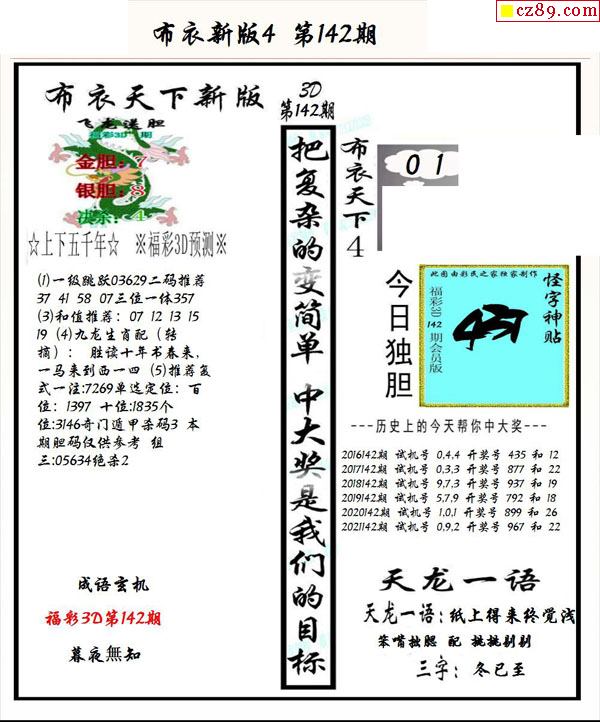 cz89.com
布衣新版4 第142期
布衣天下新版
飞龙送胆
福彩3D 期
金胆：7
银胆：8
决杀：4
☆上下五千年☆ ※福彩3D预测※
(1)一级跳跃03629二码推荐
37 41 58 07三位一体357
(3)和值推荐：07 12 13 15
19 (4)九龙生肖配（转
摘）： 胜读十年书春来，
一马来到西一四 (5)推荐复
式一注:7269单选定位：百
位：1397 十位:1835个
位:3146奇门遁甲杀码3 本
期胆码仅供参考 组
三:05634绝杀2
成语玄机
福彩3D第142期
暮夜無知
3D
第142期
把复杂的变简单 中大奖是我们的目标
布衣天下4
01
今日独胆
此图由彩民之家独家制作
福彩3D 142 期会员版
怪字神贴
---历史上的今天帮你中大奖---
2016142期 试机号 0.4.4 开奖号 435 和 12
2017142期 试机号 0.3.3 开奖号 877 和 22
2018142期 试机号 9.7.3 开奖号 937 和 19
2019142期 试机号 5.7.9 开奖号 792 和 18
2020142期 试机号 1.0.1 开奖号 899 和 26
2021142期 试机号 0.9.2 开奖号 967 和 22
天龙一语
天龙一语：纸上得来终觉浅
笨嘴拙腮 配 挑挑剔剔
三字：冬已至